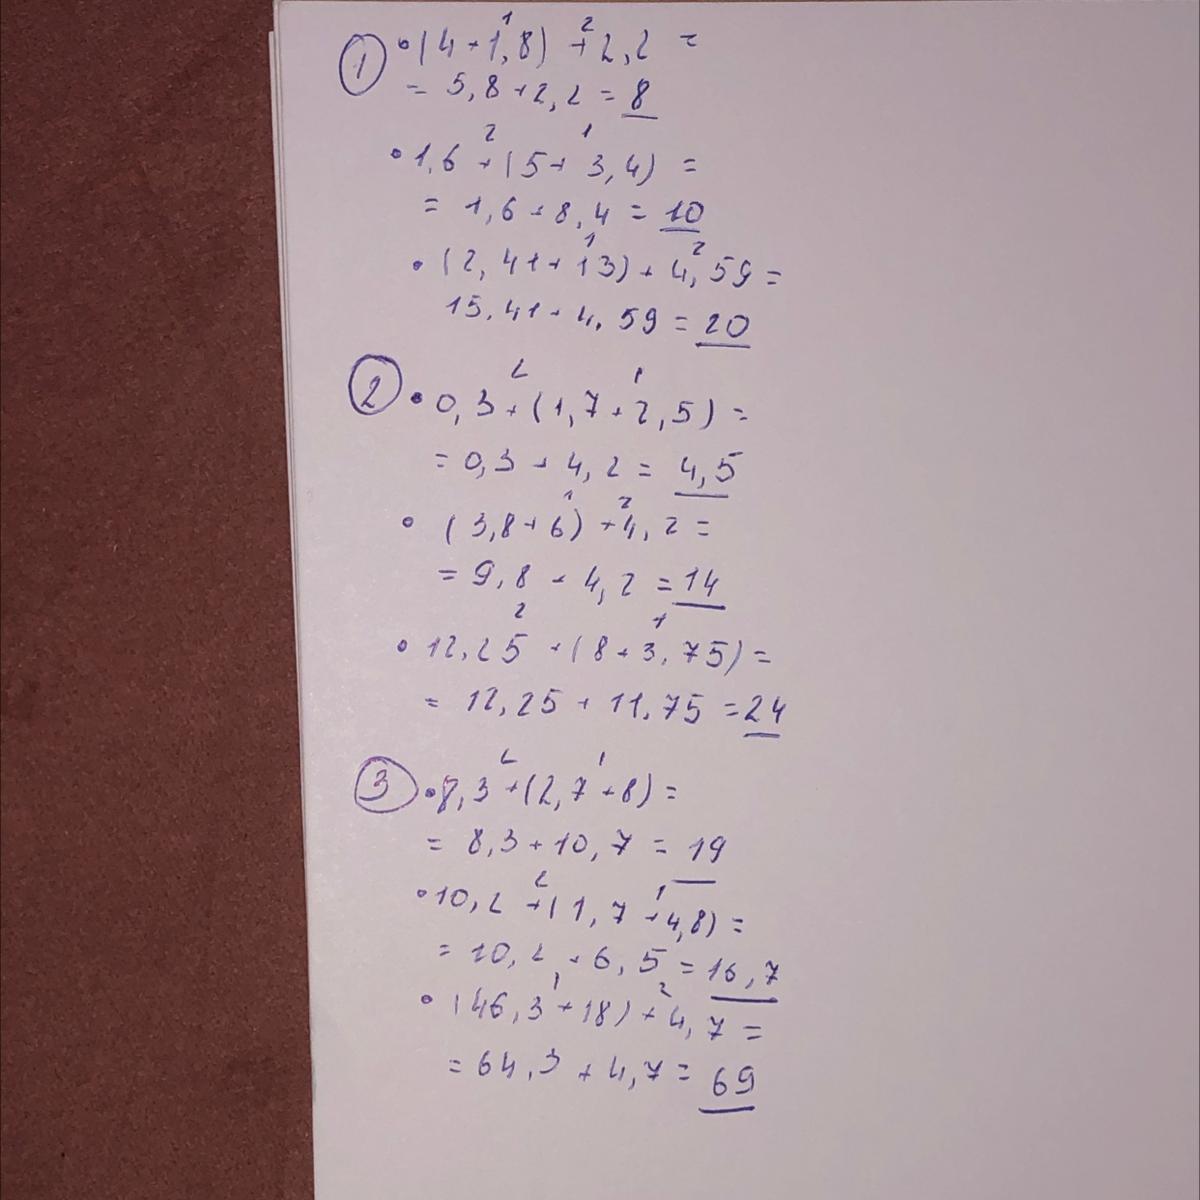 1 • (4 + 1,8) + 2,2 =
= 5,8 + 2,2 = 8
• 1,6 + (5 + 3,4) =
= 1,6 + 8,4 = 10
• (2,41 + 13) + 4,59 =
15,41 + 4,59 = 20
2 • 0,3 + (1,7 + 2,5) =
= 0,3 + 4,2 = 4,5
• (3,8 + 6) + 4,2 =
= 9,8 + 4,2 = 14
• 12,25 + (8 + 3,75) =
= 12,25 + 11,75 = 24
3 • 8,3 + (2,7 + 8) =
= 8,3 + 10,7 = 19
• 10,2 + (1,7 + 4,8) =
= 10,2 + 6,5 = 16,7
• (46,3 + 18) + 4,7 =
= 64,3 + 4,7 = 69